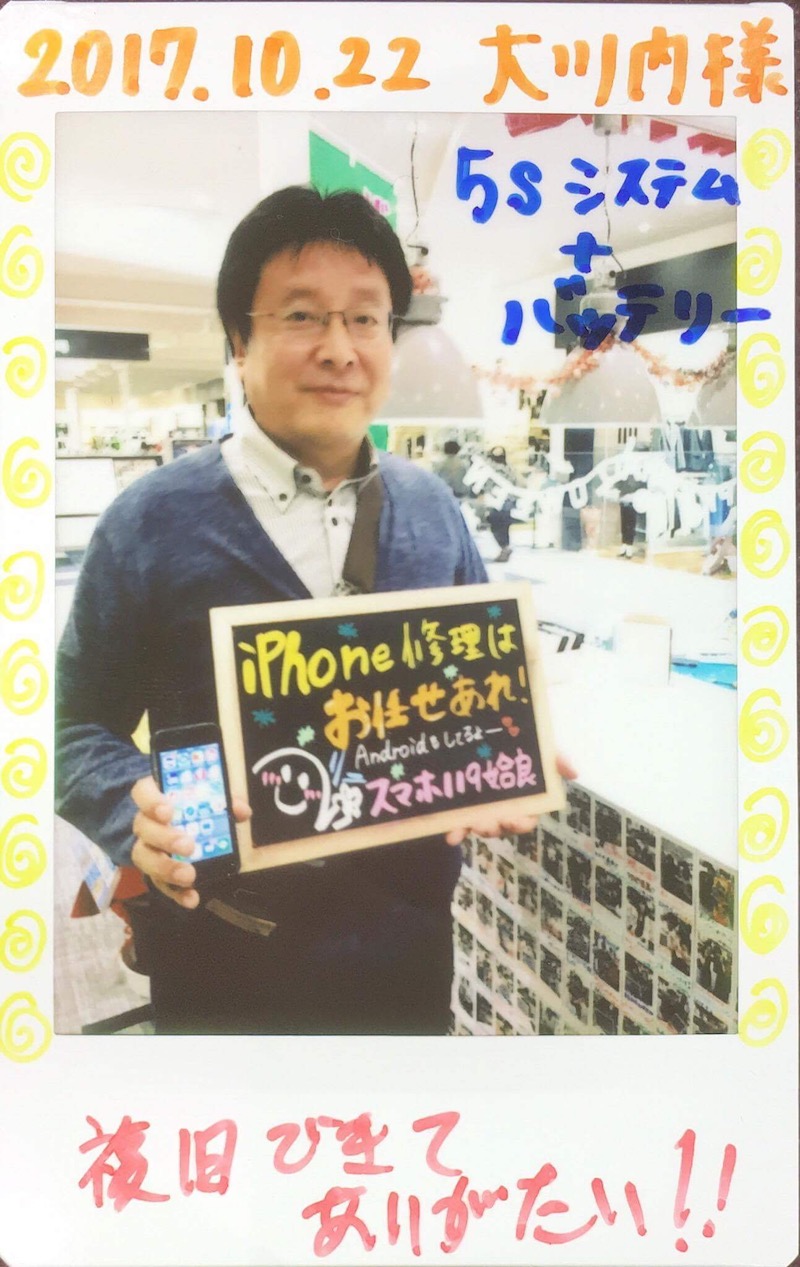 2017.10.22 大川内様
5S システム
+
バッテリー
iPhone 修理は
お任せあれ！
Androidもしてるよー
スマホ119姶良
復旧できて
ありがたい！！